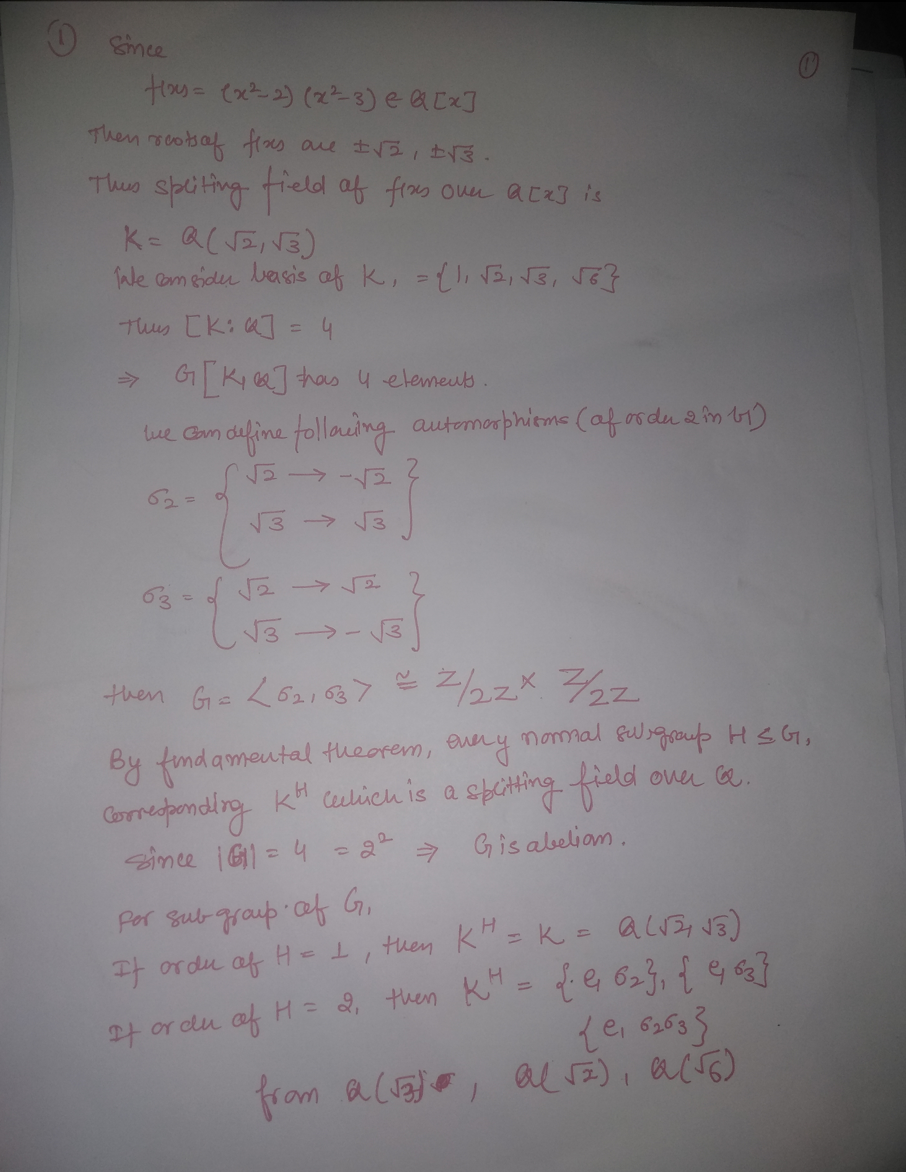 ① Since ①
f(x) = (x²-2) (x²-3) ∈ Q[x]
Then roots of f(x) are ±√2, ±√3.
Thus spliting field of f(x) over Q[x] is
K = Q(√2, √3)
We consider basis of K, = {1, √2, √3, √6}
Thus [K: Q] = 4
⇒ G[K, Q] has 4 elements.
We can define following automorphisms (of order 2 in G)
σ₂ = { √2 → -√2
√3 → √3 }
σ₃ = { √2 → √2
√3 → -√3 }
then G = <σ₂, σ₃> ≅ Z/2Z × Z/2Z
By fundamental theorem, every normal subgroup H ≤ G,
corresponding K^H which is a splitting field over Q.
Since |G| = 4 = 2² ⇒ G is abelian.
For sub-group of G,
If order of H = 1, then K^H = K = Q(√2, √3)
If order of H = 2, then K^H = {e, σ₂}, {e, σ₃}
{e, σ₂σ₃}
from Q(√3), Q(√2), Q(√6)